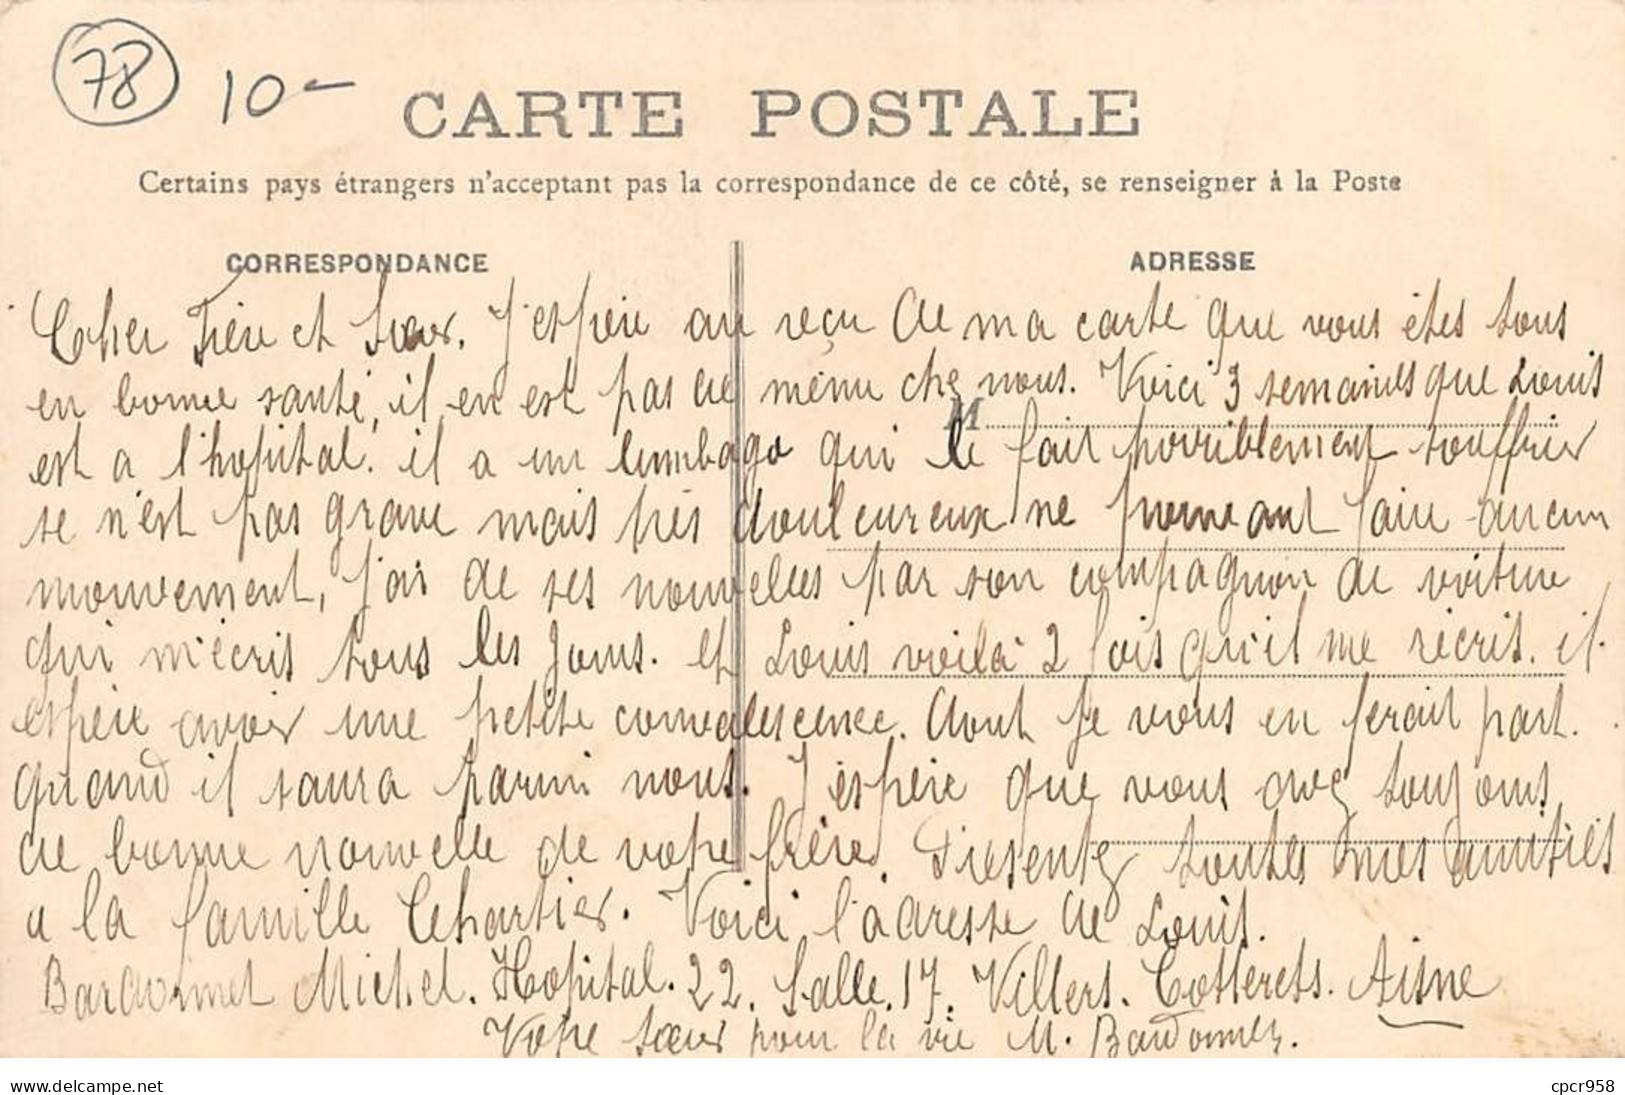 78 10-
CARTE POSTALE
Certains pays étrangers n'acceptant pas la correspondance de ce côté, se renseigner à la Poste
CORRESPONDANCE ADRESSE
Cher Frère et Sœur. J'espère au reçu de ma carte que vous êtes tous
en bonne santé, il en est pas de même chez nous. Voici 3 semaines que Louis
M
est a l'hopital. il a un lumbago qui le fait horriblement souffrir
se n'est pas grave mais très douleureux ne pouveant faire aucun
mouvement, j'ai de ses nouvelles par son compagnon de voiture
qui m'écris tous les jours. et Louis voilà 2 fois qu'il me récris. il
espère avoir une petite convalescence. dont je vous en ferait part.
quand il saura parmi nous. J'espère que vous avez toujours
de bonne nouvelle de votre frère. Presentez toutes mes amitiés
a la famille Lehartier. Voici l'adresse de Louis.
Bardonnet Michel. Hopital. 22. Salle. 17. Villers. Cotterets. Aisne
Votre sœur pour la vie M. Bardonnet.
delcampe.net cpcr958